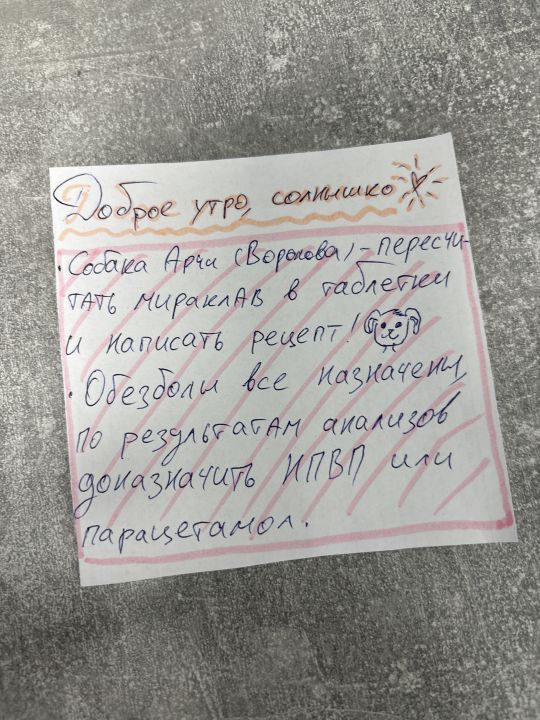 Доброе утро, солнышко
• Собака Арчи (Воронова) - пересчи-
тать мираклав в таблетки
и написать рецепт!
• Обезболы все назначены,
по результатам анализов
доназначить НПВП или
парацетамол.